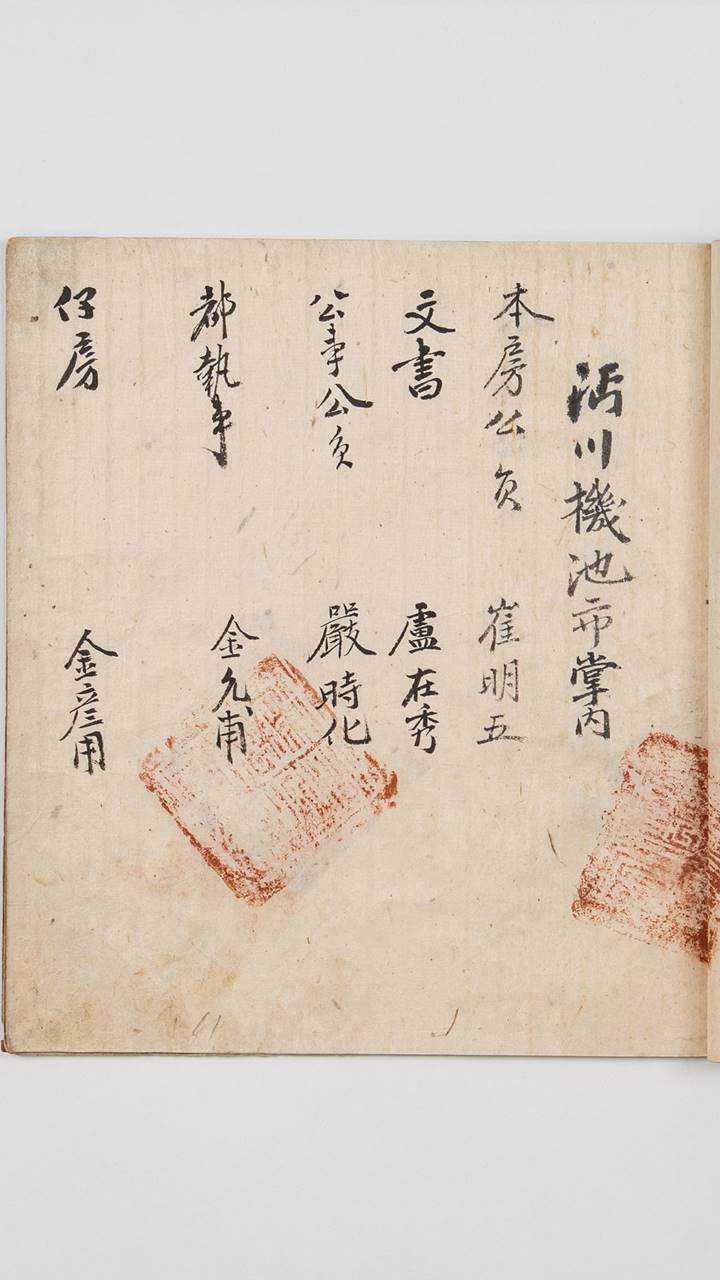 沔川機池市掌內
本房公員 崔明五
文書 盧在秀
公事公員 嚴時化
都執事 金允甫
仔房 金彦用